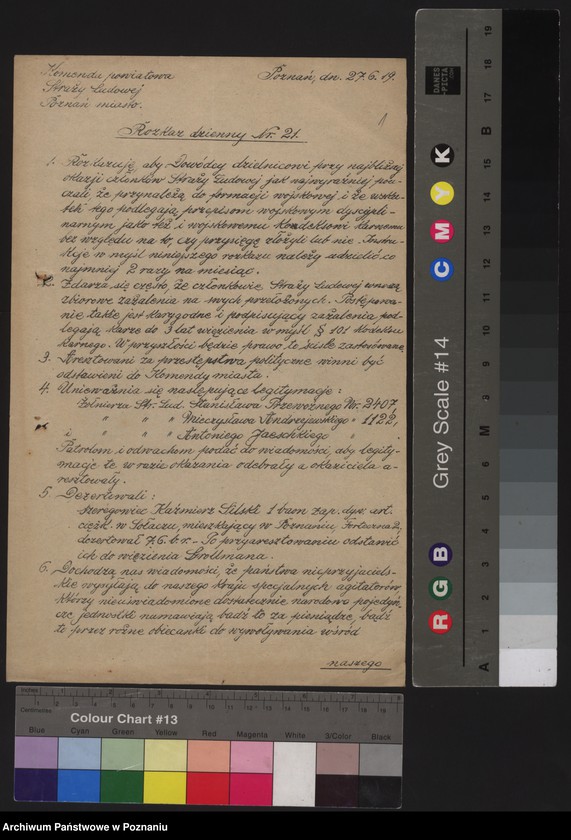 Komenda powiatowa
Straży Ludowej
Poznań miasto.
Poznań, dn. 27.6.19.
1
Rozkaz dzienny Nr. 21.
1. Rozkazuję, aby Dowódcy dzielnicowi przy najbliższej
okazji członków Straży Ludowej jak najwyraźniej pou-
czali, że przynależą do formacji wojskowej i że wsku-
tek tego podlegają przepisom wojskowym dyscypli-
narnym jako też i wojskowemu Kodeksowi Karnemu
bez względu na to, czy przysięgę złożyli lub nie. Instru-
kcje w myśl niniejszego rozkazu należy udzielić co
najmniej 2 razy na miesiąc.
2. Zdarza się często, że członkowie Straży Ludowej wnoszą
zbiorowe zażalenia na swych przełożonych. Postępowa-
nie takie jest karygodne i podpisujący zażalenia pod-
legają karze do 3 lat więzienia w myśl § 101 Kodeksu
karnego. W przyszłości będzie prawo te ściśle zastosowane.
3. Aresztowani za przestępstwa polityczne winni być
odstawieni do Komendy miasta.
4. Unieważnia się następujące legitymacje:
Żołnierza Str. Lud. Stanisława Przewoźnego Nr. 2407,
" " " Mieczysława Andrzejewskiego " 1122,
i " " " Antoniego Jaeschkiego " .
Patrolom i odwachom podać do wiadomości, aby legity-
macje te w razie okazania odebrały a okaziciela a-
resztowały.
5. Dezertowali:
szeregowiec Kaźmierz Lilski 1 baon zap. dyw. art.
ciężk. w Sołaczu, mieszkający w Poznaniu,
dezertował 7.6. b.r. - Po przyaresztowaniu odstawić
ich do więzienia Grollmana.
6. Dochodzą nas wiadomości, że państwa nieprzyjaciels-
kie wysyłają do naszego kraju specjalnych agitatorów,
którzy nieuświadomione dostatecznie narodowo pojedyń-
cze jednostki namawiają bądź to za pieniądze, bądź
to przez różne obiecanki do wywoływania wśród
naszego
Grey Scale #14
DANES
-PICTA
.COM
A 1 2 3 4 5 6 M 8 9 10 11 12 13 14 15 B 17 18 19
R G B
C M Y K
Inches 1 2 3 4 5 6 7 8
Centimetres 1 2 3 4 5 6 7 8 9 10 11 12 13 14 15 16 17 18 19
Colour Chart #13
Blue Cyan Green Yellow Red Magenta White 3/Color Black
Archiwum Państwowe w Poznaniu